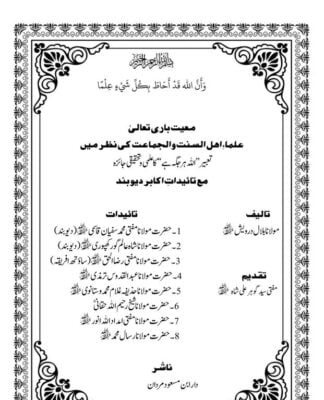 بسم اللہ الرحمن الرحیم
وَأَنَّ اللّٰهَ قَدْ أَحَاطَ بِكُلِّ شَيْءٍ عِلْمًا
معیت باری تعالیٰ
علماء اہل السنت والجماعت کی نظر میں
تعبیر "اللہ ہر جگہ ہے" کا علمی و تحقیقی جائزہ
مع تائیدات اکابر دیوبند
تالیف
مولانا بلال درویش
تقدیم
مفتی سید گوہر علی شاہ
تائیدات
1۔ حضرت مولانا مفتی محمد سفیان قاسمی (دیوبند)
2۔ حضرت مولانا شاہ عالم گورکھپوری (دیوبند)
3۔ حضرت مولانا مفتی رضاء الحق (ساؤتھ افریقہ)
4۔ حضرت مولانا عبد القدوس ترمذی
5۔ حضرت مولانا حذیفہ غلام محمد وستانوی
6۔ حضرت مولانا شیخ رحیم اللہ حقانی
7۔ حضرت مولانا مفتی امداد اللہ انور
8۔ حضرت مولانا رسال محمد
ناشر
دار ابن مسعود مردان